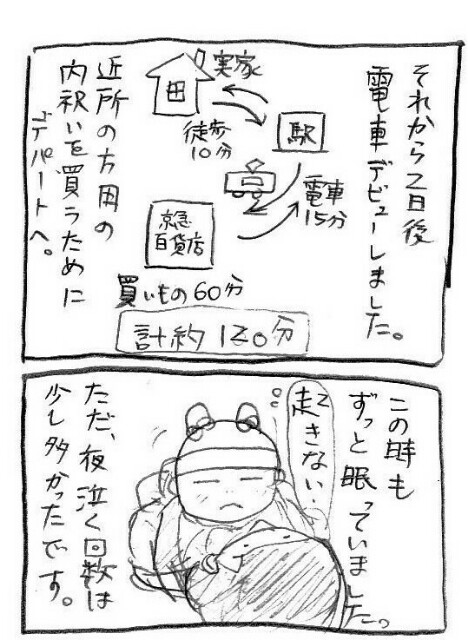 それから2日後
電車デビューしました。
実家
徒歩
10分
駅
電車
15分
京急
百貨店
買いもの60分
計約120分
近所の方用の
内祝いを買うために
デパートへ。
この時も
ずっと眠っていました。
起きない…
ただ、夜泣く回数は
少し多かったです。